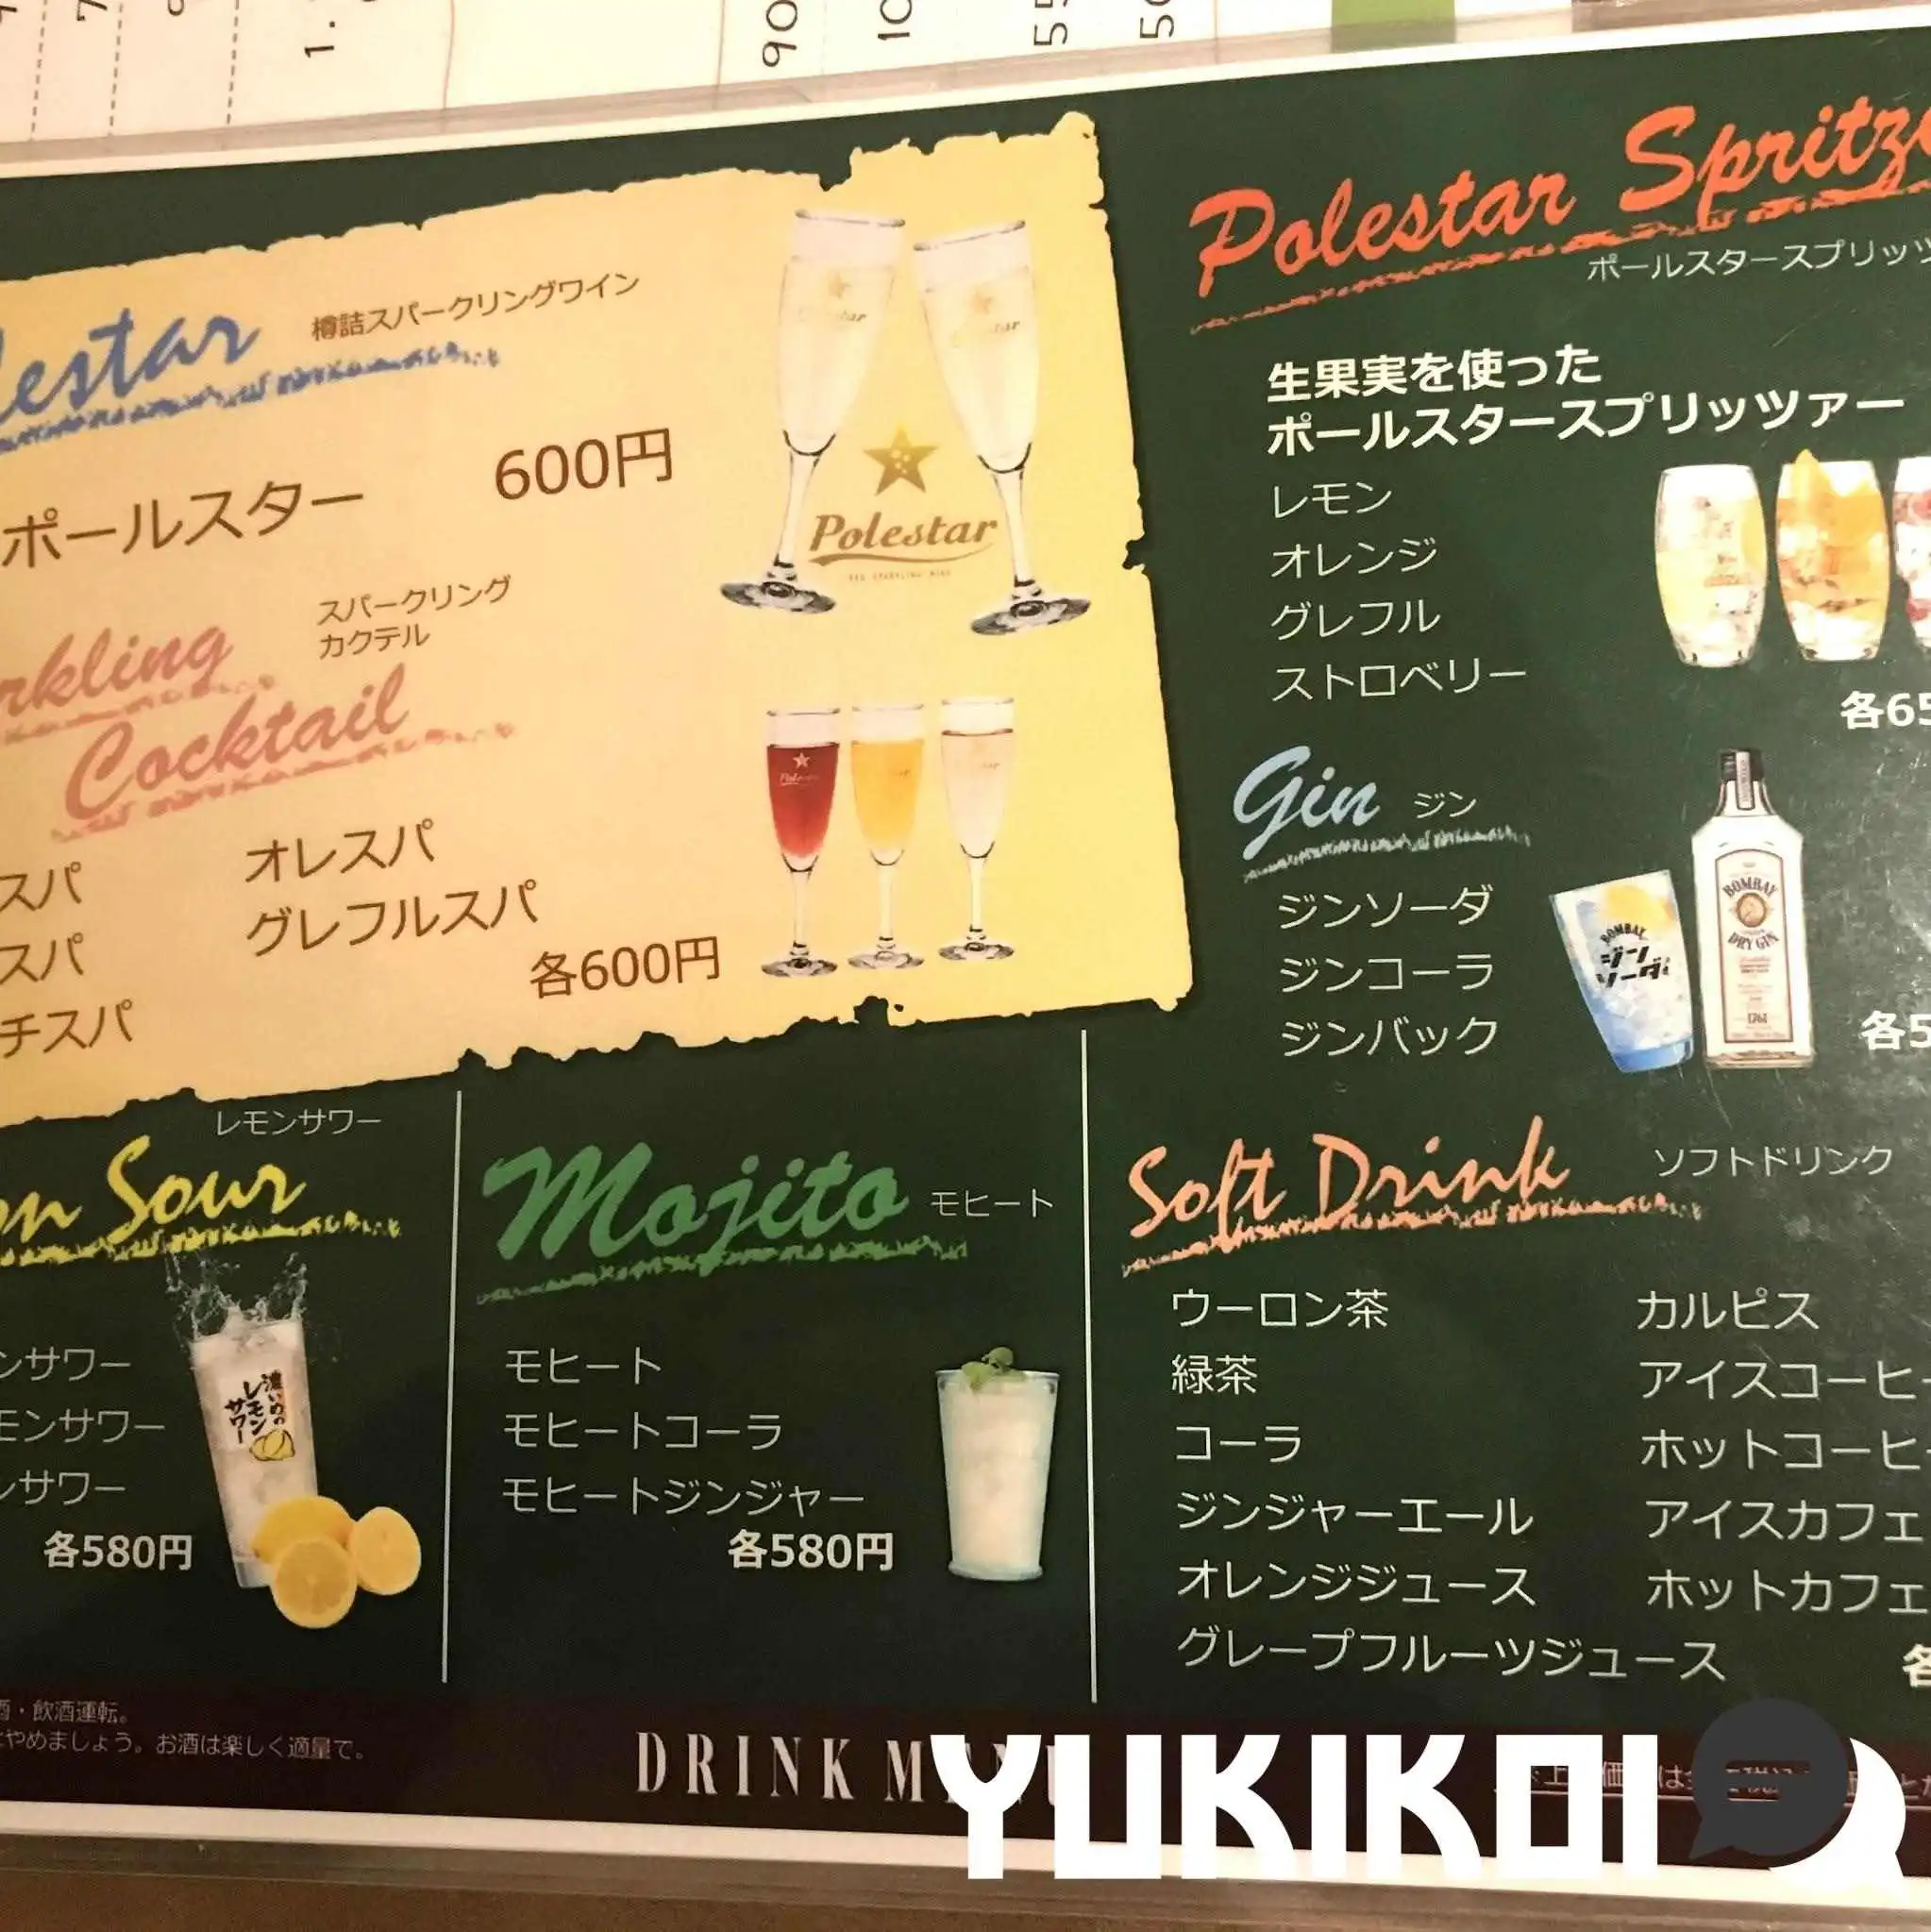 90
10
樽詰スパークリングワイン
ポールスター 600円
Polestar
スパークリング
カクテル
Cocktail
オレスパ
グレフルスパ
各600円
Polestar
ポールスタースプリッツ
生果実を使った
ポールスタースプリッツァー
レモン
オレンジ
グレフル
ストロベリー
Gin ジン
ジンソーダ
ジンコーラ
ジンバック
BOMBAY
ジン
ソーダ
BOMBAY
DRY GIN
1761
レモンサワー
Sour
濃いめの
レモン
サワー
各580円
Mojito モヒート
モヒート
モヒートコーラ
モヒートジンジャー
各580円
Soft Drink ソフトドリンク
ウーロン茶
緑茶
コーラ
ジンジャーエール
オレンジジュース
グレープフルーツジュース
カルピス
アイスコーヒー
ホットコーヒー
アイスカフェ
ホットカフェ
酒・飲酒運転。
やめましょう。お酒は楽しく適量で。
DRINK MENU
YUKIKOI